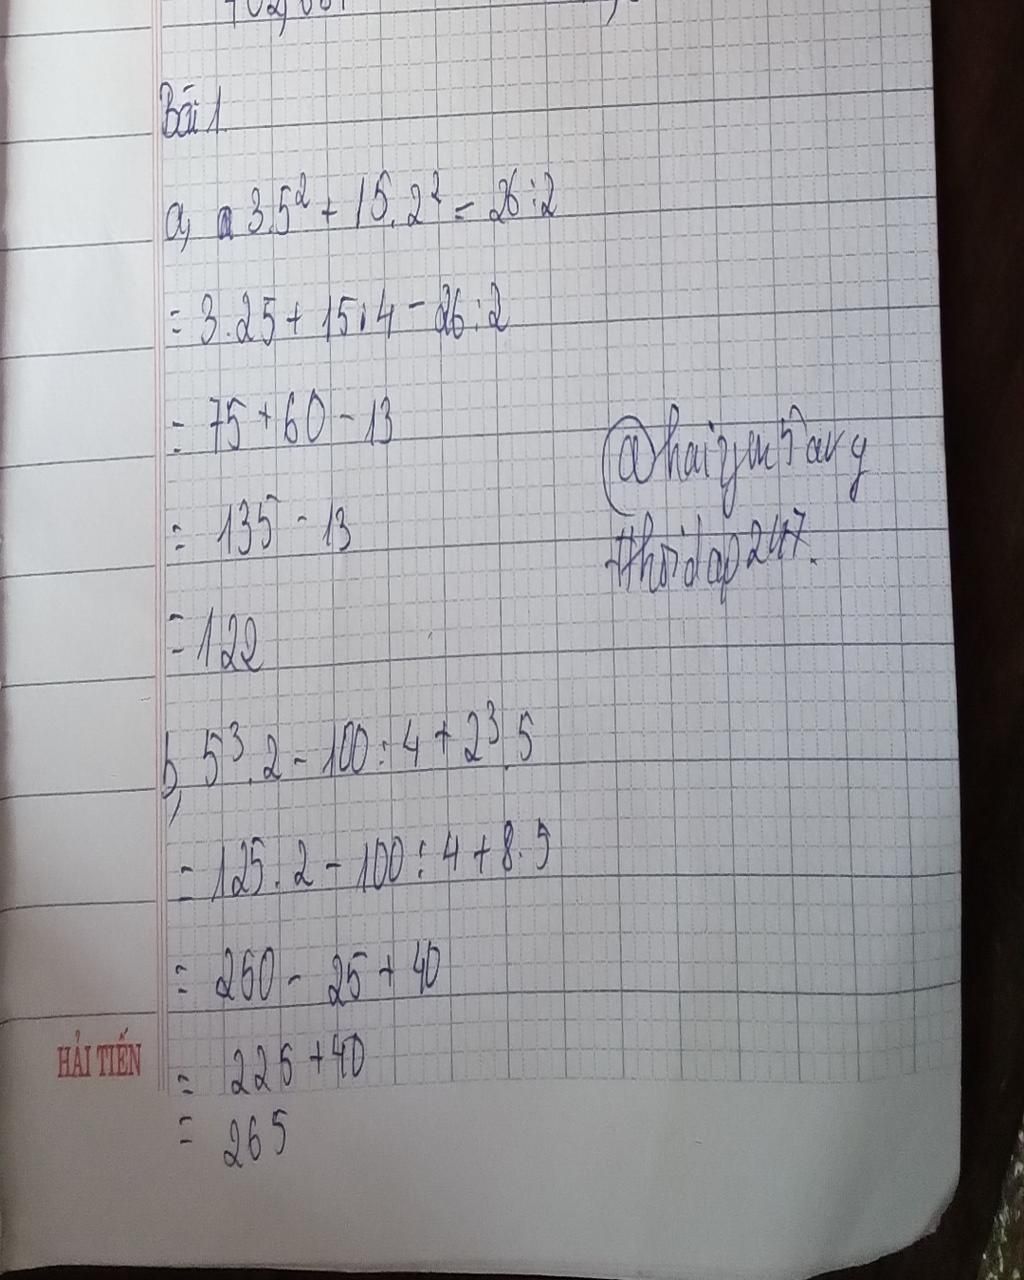 Bài 1
a, 3.5² + 15.2² - 26:2
= 3.25 + 15.4 - 26:2
= 75 + 60 - 13
= 135 - 13
= 122
#hoidap247.
b, 5³.2 - 100:4 + 2³.5
= 125.2 - 100:4 + 8.5
= 250 - 25 + 40
= 225 + 40
= 265
HẢI TIẾN